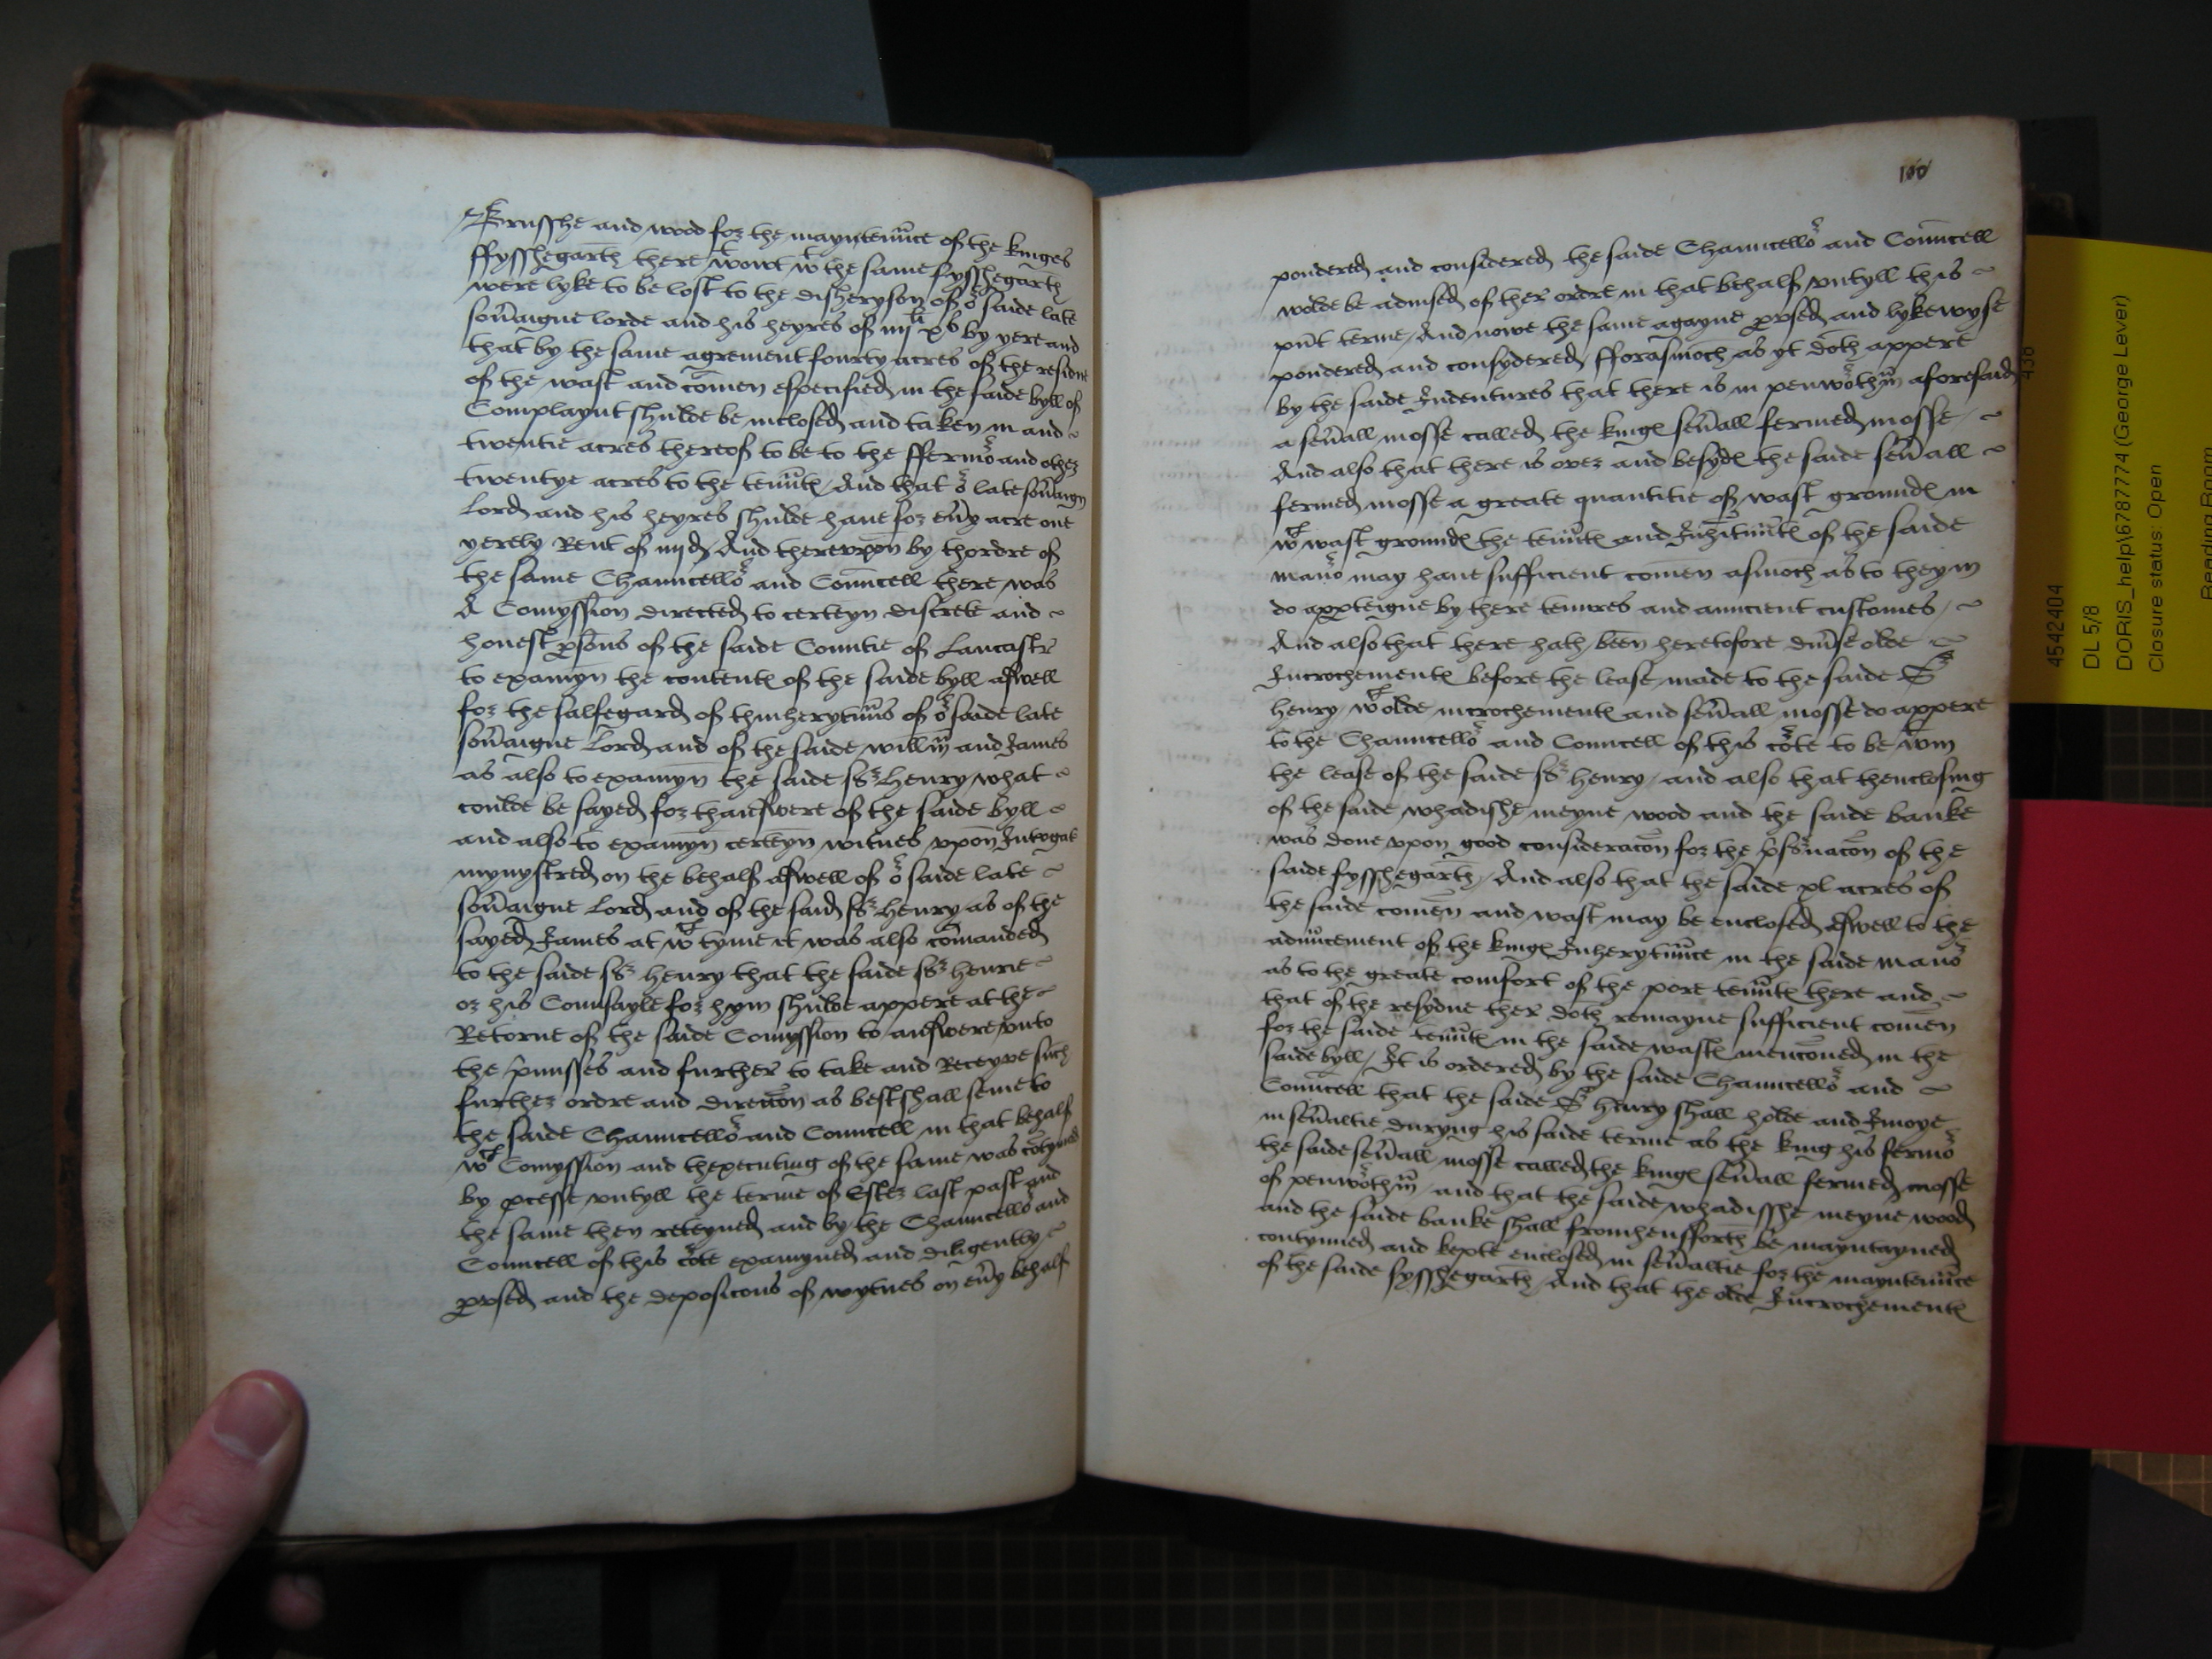 Brusshe and wood for the mayntenũnce of the kinges
ffysshegarth there wowt wt the same fysshegarth
were lyke to be lost to the disheryson of or saide late
soũaigne lorde and his heyres of iiijli xs by yere and
that by the same agrement fourty acres of the residue
of the wast and comen especified in the saide byll of
Complaynt shulde be inclosed and taken in and
twentie acres thereof to be to the ffermor and other
twentye acres to the tenũtes And that or late soũaign
Lord and his heyres shulde haue for eũy acre one
yerely Rent of iiijd And therevpon by thordre of
the same Chauncellor and Councell there was
A Comyssion directed to certeyn discrete and
honest psons of the saide Countie of Lancastr
to examyn the contentes of the saide byll aswell
for the salfegard of thinherytũns of or saide late
soũaigne Lord and of the saide willm and James
as also to examyn the saide sr henry what
coulde be sayed for thanswere of the saide byll
and also to examyn certeyn witnes vpon Introgat
mynystred on the behalf aswell of or saide late
soũaigne Lord and of the said sr henry as of the
sayed James at wch tyme it was also comanded
to the saide sr henry that the saide sr henrie
or his Counsayle for hym shulde appere at the
Retorne of the saide Comyssion to answere vnto
the p̃misses and further to take and Receyve such
further ordre and direccon as best shall seme to
the saide Chauncellor and Councell in that behalf
wch Comyssion and thexecuting of the same was cotynued
by pcesse vntyll the terme of Ester last past and
the same then reteyned and by the Chauncellor and
Councell of this corte examyned and diligently
pvsed and the deposicons of wytnes on eũy behalf
100
pondered and considered the saide Chauncellor and Councell
wolde be aduised of ther ordre in that behalf vntyll this
pñt terme And nowe the same agayne pvsed and lykewyse
pondered and consydered fforasmoch as yt doth appere
by the saide Indentures that there is in penwortham aforesaid
a seũall mosse called the kinges seũall fermed mosse
And also that there is over and besydes the saide seũall
fermed mosse a greate quantitie of wast groundes in
wch wast groundes the tenũtes and Inhitũntes of the saide
manor may haue sufficient comen asmoch as to theym
do apperteigne by there tenures and auncient customes
And also that there hath been heretofore diũse olde
Incrochementes before the lease made to the saide Sr
henry wch olde incrochementes and seũall mosse do appere
to the Chauncellor and Councell of this corte to be wtin
the lease of the saide sr henry and also that thenclosing
of the saide whadishe meyne wood and the saide banke
was done vpon good consideracon for the p̃seruacon of the
saide fysshegarth And also that the saide xl acres of
the saide comen and wast may be enclosed aswell to the
aduũcement of the kinges Inherytũnce in the saide manor
as to the greate comfort of the pore tenũtes there and
that of the resydue ther doth remayne sufficient comen
for the saide tenũtes in the saide wastes mencoued in the
saide byll It is ordered by the saide Chauncellor and
Councell that the saide Sr henry shall holde and Inioye
in seũaltie duryng his saide terme as the king his fermor
the saide seũall mosse called the kinges seũall fermed mosse
of penwortham and that the saide whadisshe meyne wood
and the saide banke shall from hensfforth be mayntayned
contynued and kepte enclosed in seũaltie for the mayntenũce
of the saide fysshegarth And that the olde Incrochementes
4542404
DL 5/8
DORIS_help\6787774 (George Lever)
Closure status: Open
Reading Room